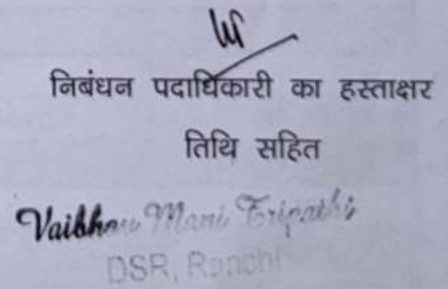 निबंधन पदाधिकारी का हस्ताक्षर
तिथि सहित
Vaibhav Mani Tripathi
DSR, Ranchi